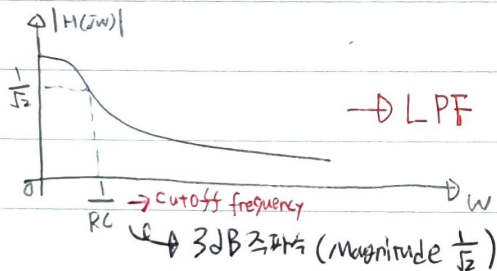 |H(jw)|
1/√2
→ LPF
0
w
1/RC → cutoff frequency
→ 3dB 주파수 (Magnitude 1/√2)